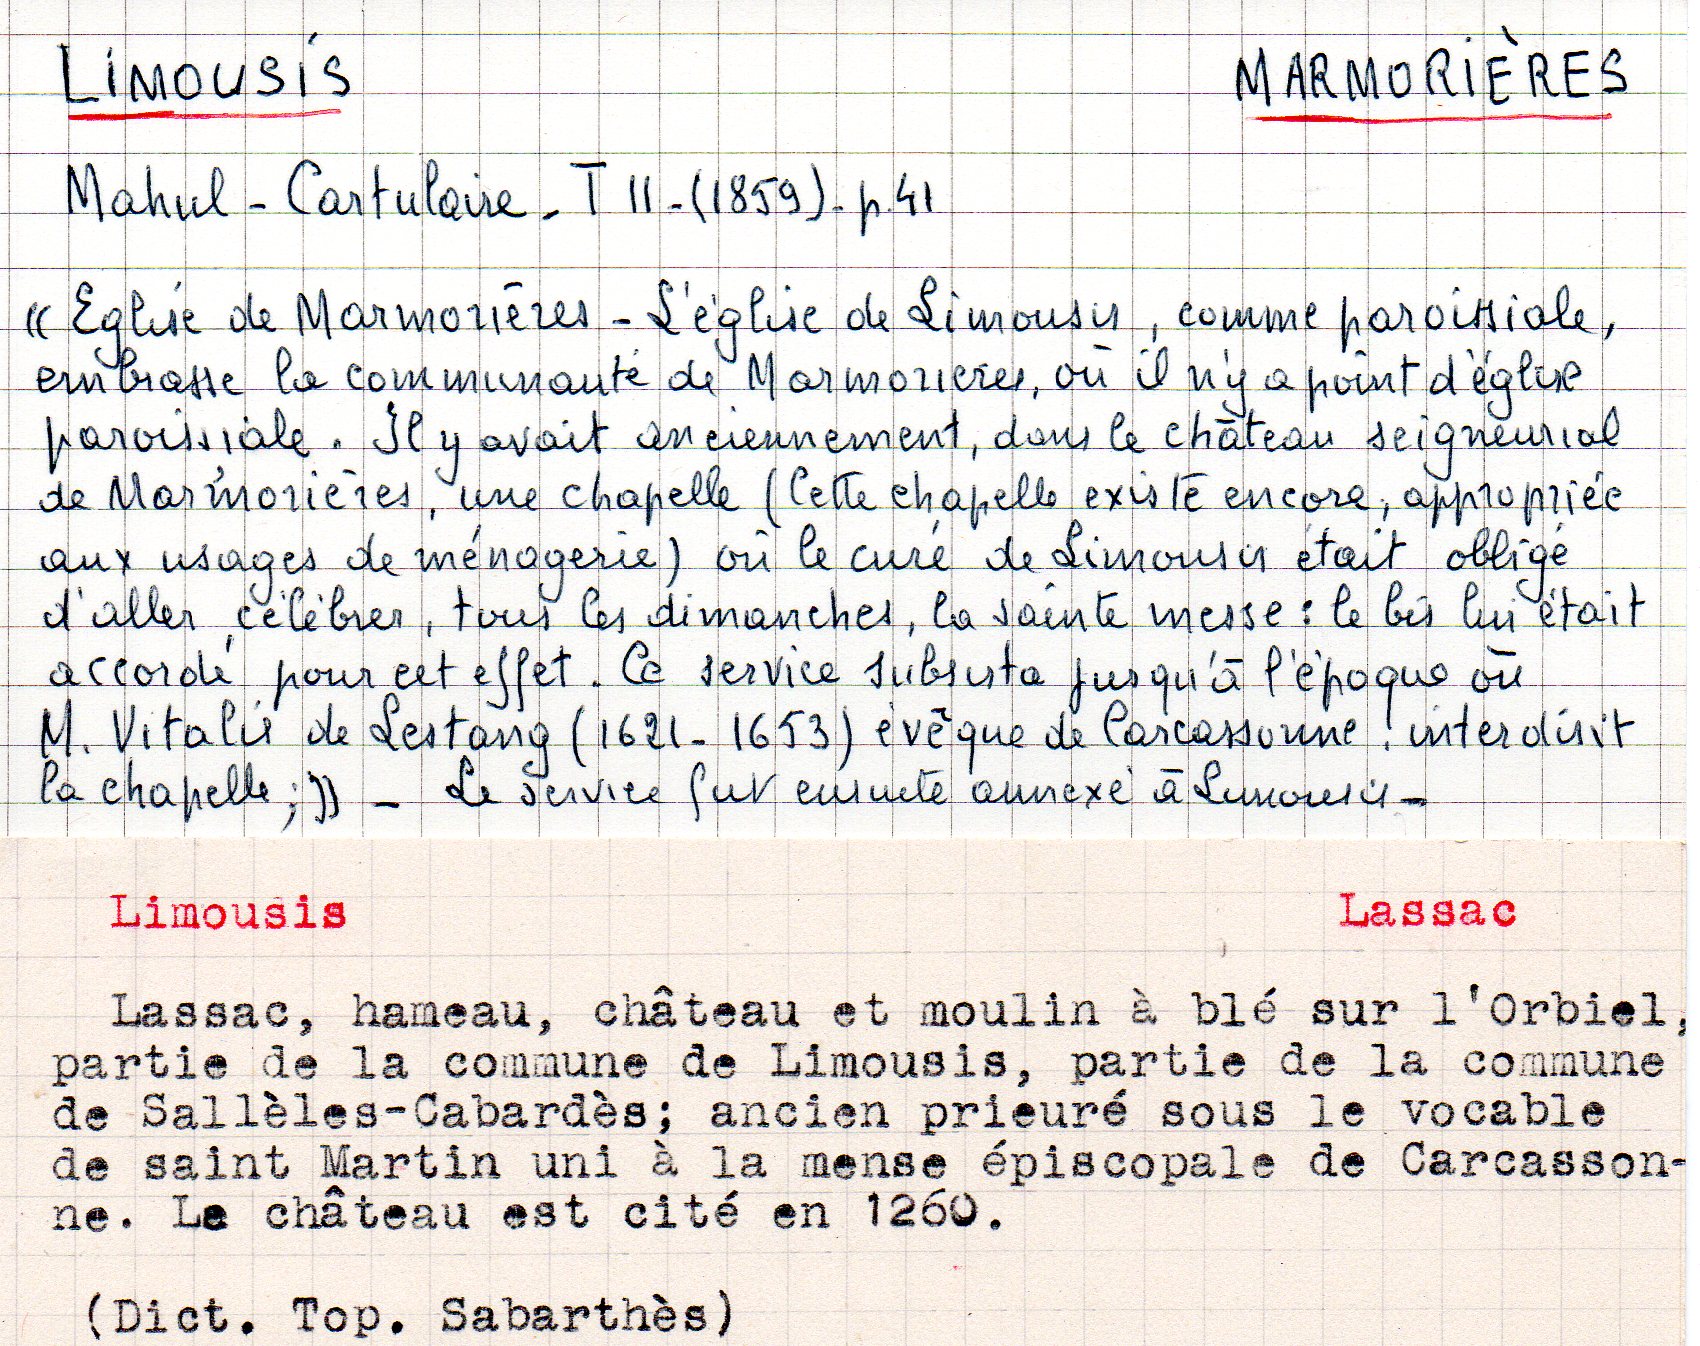 LIMOUSIS MARMORIÈRES
Mahul - Cartulaire - T II - (1859) - p. 41
« Eglise de Marmorières - L'église de Limousis, comme paroissiale,
embrasse la communauté de Marmorières, où il n'y a point d'église
paroissiale. Il y avait anciennement, dans le château seigneurial
de Marmorières, une chapelle (Cette chapelle existe encore, appropriée
aux usages de ménagerie) où le curé de Limousis était obligé
d'aller célébrer, tous les dimanches, la sainte messe : le bis lui était
accordé pour cet effet. Ce service subsista jusqu'à l'époque où
M. Vitalis de Lestang (1621 - 1653) évêque de Carcassonne ! interdisit
la chapelle ; » - Le service fut ensuite annexé à Limousis -
Limousis Lassac
Lassac, hameau, château et moulin à blé sur l'Orbiel,
partie de la commune de Limousis, partie de la commune
de Sallèles-Cabardès; ancien prieuré sous le vocable
de saint Martin uni à la mense épiscopale de Carcasson-
ne. Le château est cité en 1260.
(Dict. Top. Sabarthès)